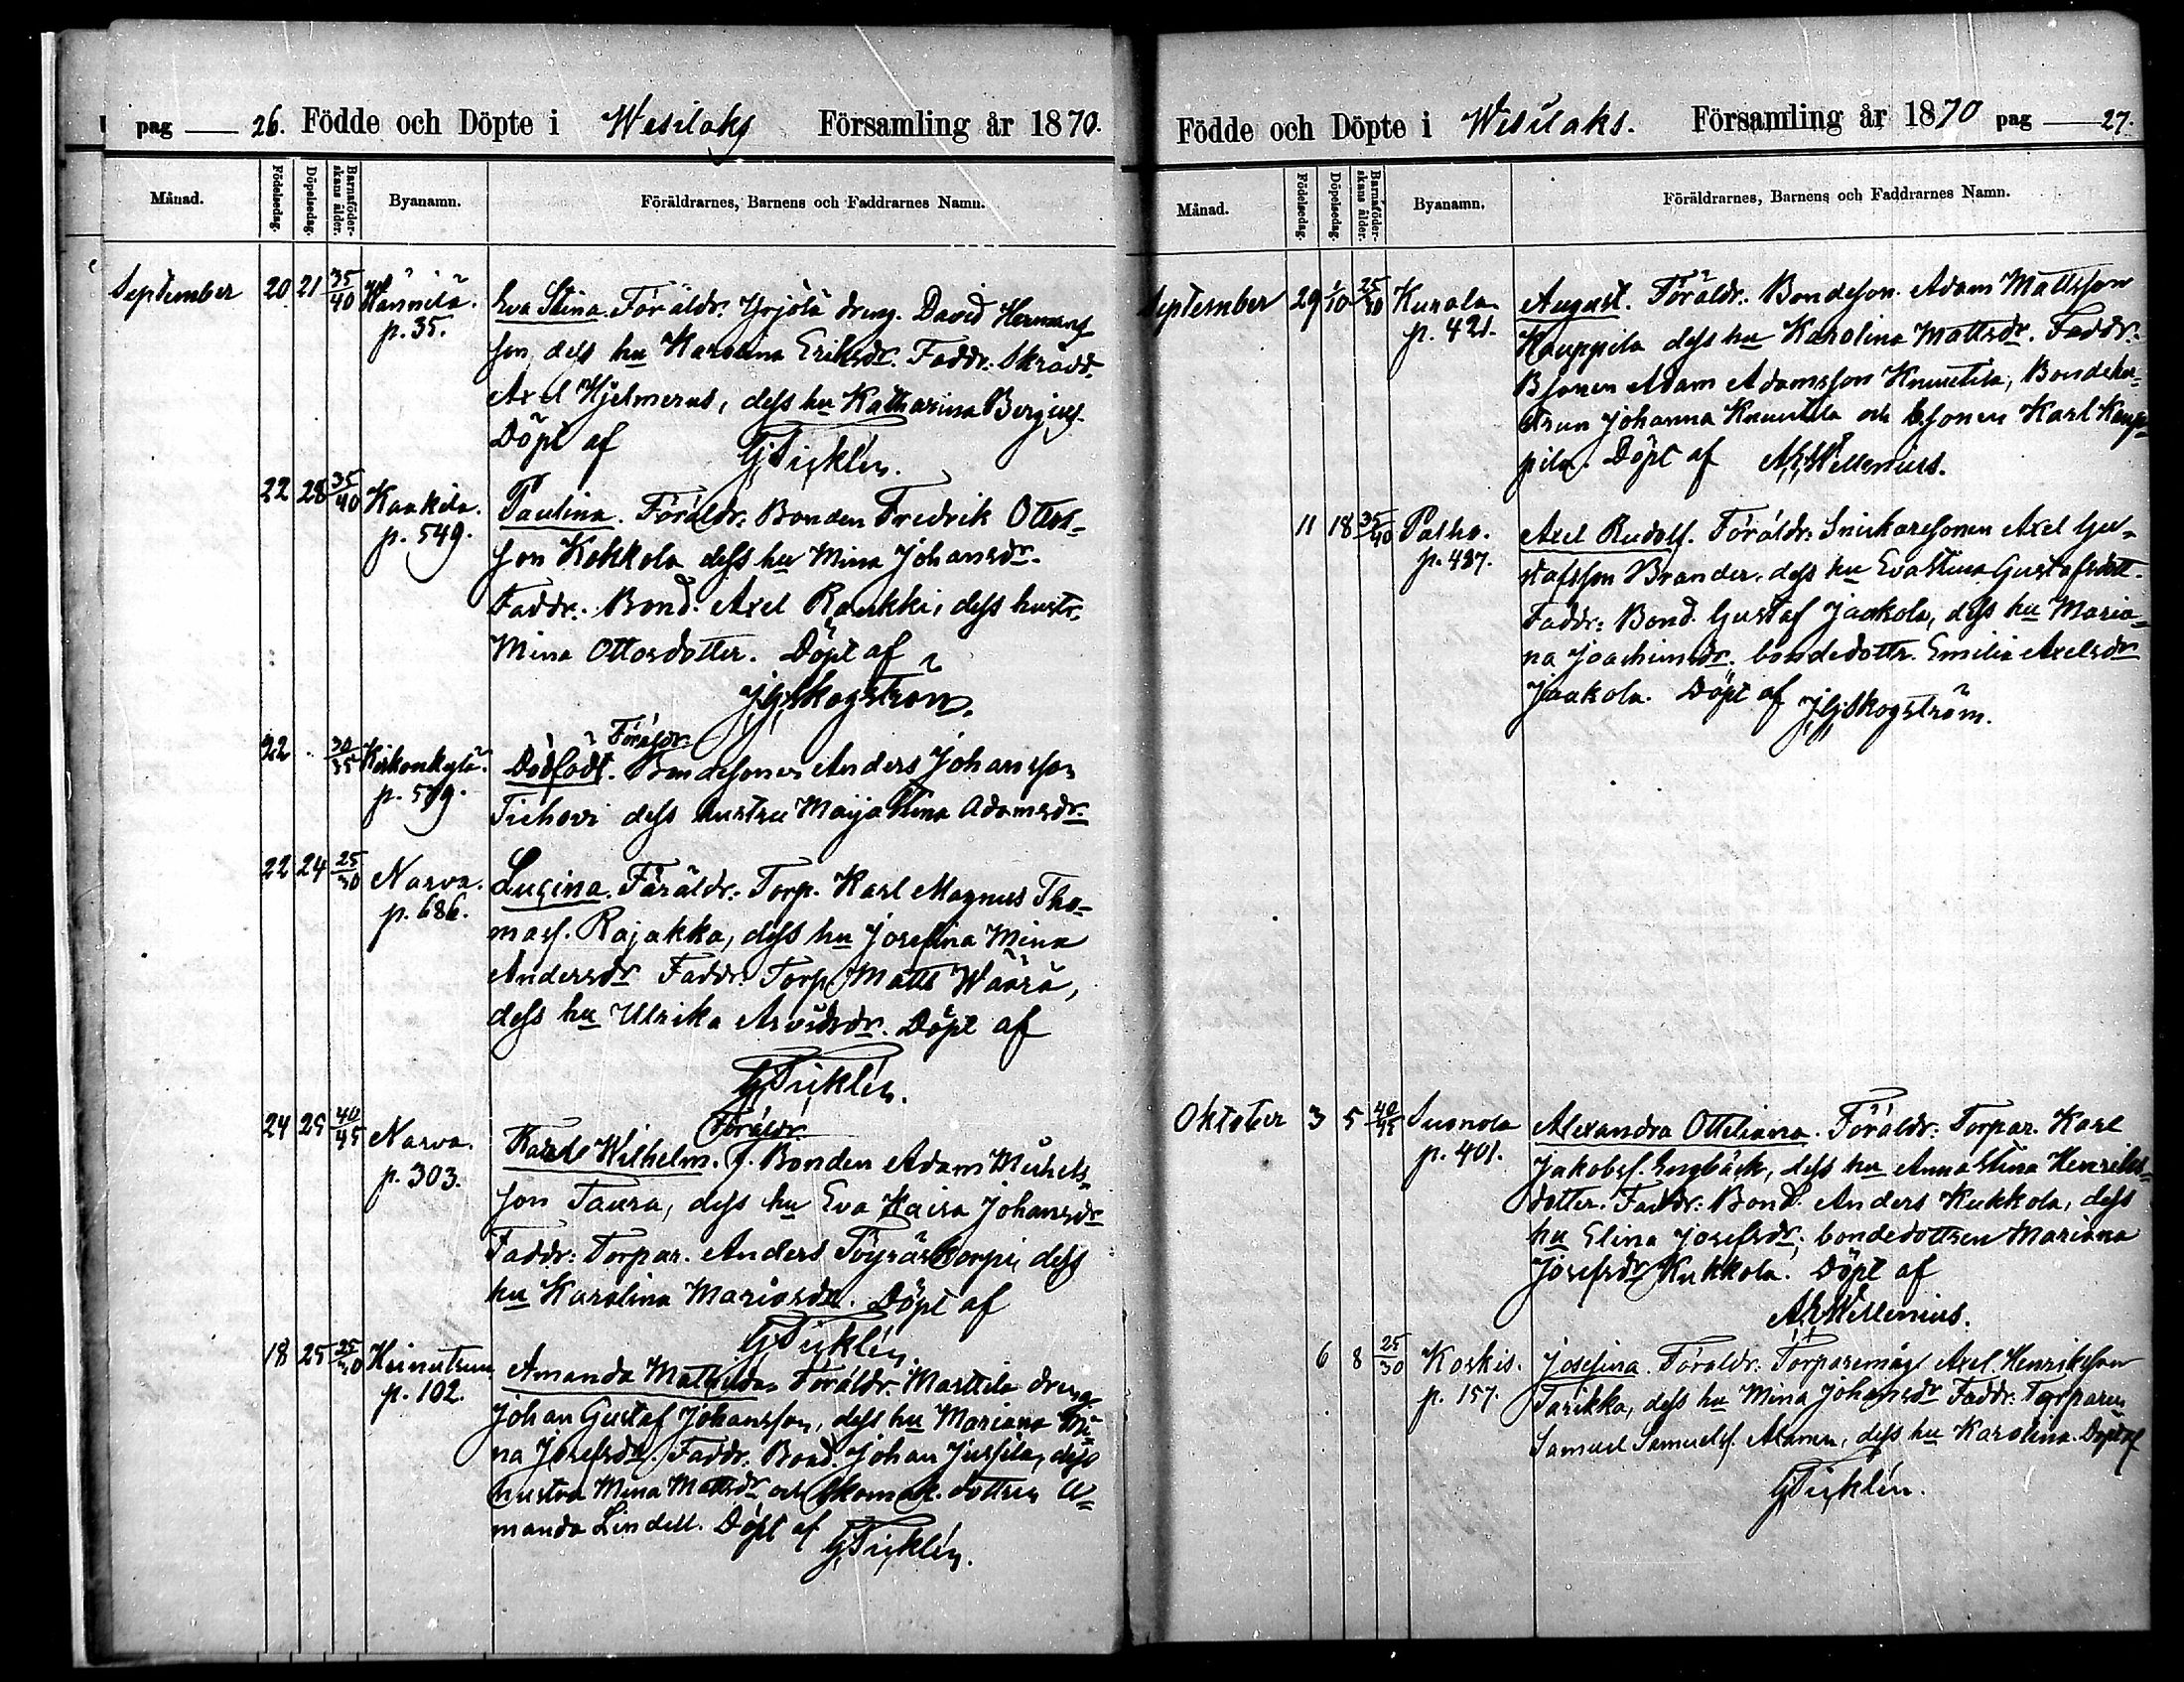 pag 26. Födde och Döpte i Wesilaks Församling år 1870.
Månad. Födelsedag. Döpelsedag. Barnaföderskans ålder. Byanamn. Föräldrarnes, Barnens och Faddrarnes Namn.
September 20 21 35/40 Hännilä. Eva Stina. Föräldr. Yrjölä dreng. David Hermans-
p. 35. son, dess hu Karolina Eriksdr. Faddr.: Skrädd.
Axel Hjelmerus, dess hu Katharina Bergius.
Döpt af G. Ticklén.
22 28 35/40 Kaakila. Paulina. Föräldr. Bonden Fredrik Ottos-
p. 549. son Kokkola dess hu Mina Johansdr.
Faddr.: Bond. Axel Raukki, dess hustr.
Mina Ottosdotter. Döpt af
J.G. Skogström.
Föräldr.
22 30/35 Kirkonkylä. Dödfödt. Bondesonen Anders Johansson
p. 579. Tiehovi dess hustru Maija Stina Adamsdr
22 24 25/30 Narva. Lucina. Föräldr. Torp. Karl Magnus Tho-
p. 686. mass. Rajakka, dess hu Josefina Mina
Andersdr Faddr. Torp. Matts Wäärä,
dess hu Ulrika Arvidsdr. Döpt af
G. Ticklén.
Föräldr.
24 25 40/45 Narva. Karl Wilhelm. f. Bonden Adam Michels-
p. 303. son Taura, dess hu Eva Kaisa Johansdr
Faddr: Torpar. Anders Töyräskorpi, dess
hu Karolina Mariasdr. Döpt af
G. Ticklén
18 25 25/30 Heinutsuu Amanda Mathilda. Föräldr. Marttila dreng
p. 102. Johan Gustaf Johansson, dess hu Mariana Wi-
na Josefsdr. Faddr. Bond. Johan Jussila, dess
hustru Mina Mattsdr och skomak. dottren A-
manda Lindell. Döpt af G. Ticklén.
Födde och Döpte i Wesilaks. Församling år 1870 pag 27.
Månad. Födelsedag. Döpelsedag. Barnaföderskans ålder. Byanamn. Föräldrarnes, Barnens och Faddrarnes Namn.
September 29 1/10 25/30 Kurala August. Föräldr. Bondeson. Adam Mattsson
p. 421. Kauppila dess hu Karolina Mattsdr. Faddr.
Bsonen Adam Adamsson Knuutila, Bondehu-
strun Johanna Knuutila och bsonen Karl Kaup-
pila. Döpt af A.E. Wellenius.
11 18 35/40 Palho. Axel Rudolf. Föräldr. Snickaresonen Axel Gu-
p. 487. stafsson Brander, dess hu Eva Stina Gustafsdott.
Faddr: Bond. Gustaf Jaakola, dess hu Maria-
na Joachimsdr. bondedottr. Emilia Axelsdr
Jaakola. Döpt af J.G. Skogström.
Oktober 3 5 40/45 Suonola Alexandra Otteliana. Föräldr: Torpar. Karl
p. 401. Jakobss. Engbäck, dess hu Anna Stina Henriks-
dotter. Faddr: Bond. Anders Kukkola, dess
hu Elina Josefsdr; bondedottren Mariana
Josefsdr Kukkola. Döpt af
A.E. Wellenius.
6 8 25/30 Koskis. Josefina. Föräldr. Torparemåg. Axel Henriksson
p. 157. Tarikka, dess hu Mina Johansdr Faddr: Torparen
Samuel Samuelss. Alanen, dess hu Karolina. Döpt af
G. Ticklén.